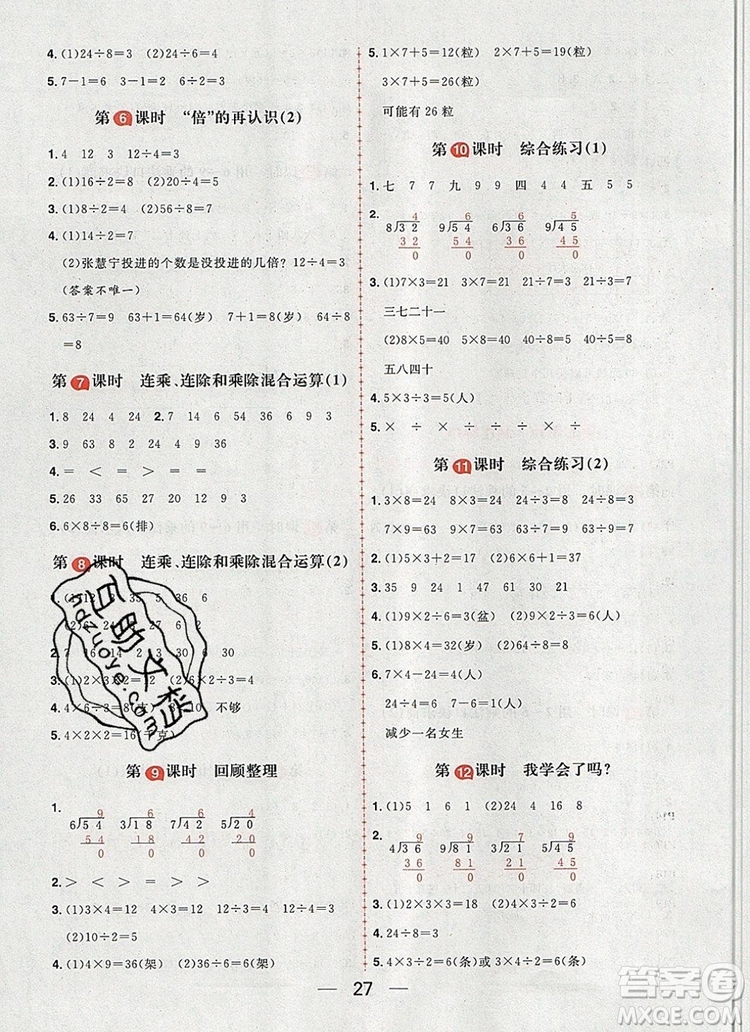 4. (1)24÷8=3 (2)24÷6=4
5. 7-1=6 3-1=2 6÷2=3
第6课时 “倍”的再认识(2)
1. 4 12 3 12÷4=3
2. (1)16÷2=8 (2)56÷8=7
4. (1)14÷2=7
(2)张慧宁投进的个数是没投进的几倍？12÷4=3
(答案不唯一)
5. 63÷7=9 63+1=64(岁) 7+1=8(岁) 64÷8
=8
第7课时 连乘、连除和乘除混合运算(1)
1. 8 24 4 24 2. 7 14 54 36 6 9 3
3. 9 63 8 24 2 12 4 9 36
4. = < = > = =
5. 26 33 65 27 20 12 9 30
6. 6×8÷8=6(排)
第8课时 连乘、连除和乘除混合运算(2)
(2)6
6 30
3. 8 24 15 12 2 3 6 30
4.
4×6=24(支) 30>24 不够
5. 4×2×2=16(千克)
第9课时 回顾整理
1.
9 6 6 4
6 54 3 18 7 42 5 20
54 18 42 20
0 0 0 0
2. > < > > = =
3. (1)3×4=12 4×3=12 12÷3=4 12÷4=3
(2)10÷2=5 36÷6=6
4. (1)4×9=36(架) (2)36÷6=6(架)
5. 1×7+5=12(粒) 2×7+5=19(粒)
3×7+5=26(粒)
可能有 26 粒
第10课时 综合练习(1)
1. 七 7 7 九 9 9 四 4 4 五 5 5
2.
4 6 5
8 32 4 24 9 45
32 24 45
0 0 0
3. (1)7×3=21 3×7=21 21÷7=3 21÷3=7
三七二十一
(2)8×5=40 5×8=40 40÷8=5 40÷5=8
五八四十
4. 5×3÷3=5(人)
5. × × ÷ ÷ × ÷
第11课时 综合练习(2)
1. 3×8=24 8×3=24 24÷8=3 24÷3=8
7×9=63 9×7=63 63÷7=9 63÷9=7
2. (1)2×2=4 (2)6×6=36
3. 35 9 21 1 24 31 64 61
4. (1)9×2÷6=3(盆) (2)9×2÷3=6(盆)
5. (1)8×4=32(岁) (2)32÷4=8
6. 7×4-4=24(人) 24÷4=6(人)
24÷4=6 7-6=1(人)
减少一名女生
第12课时 我学会了吗？
1. (1)5 1 8 (2)24 4 16 8
2.
9 9 9
4 36 9 81 5 45
36 81 45
0 0 0
3. (1)2×2×3=12 (2)2×2÷4=1
4. 24÷8=3
5. 4×3÷2=6(条)或 3×4÷2=6(条)
27
百助文档
hdzuoye.com
答案圈
MXQE.COM